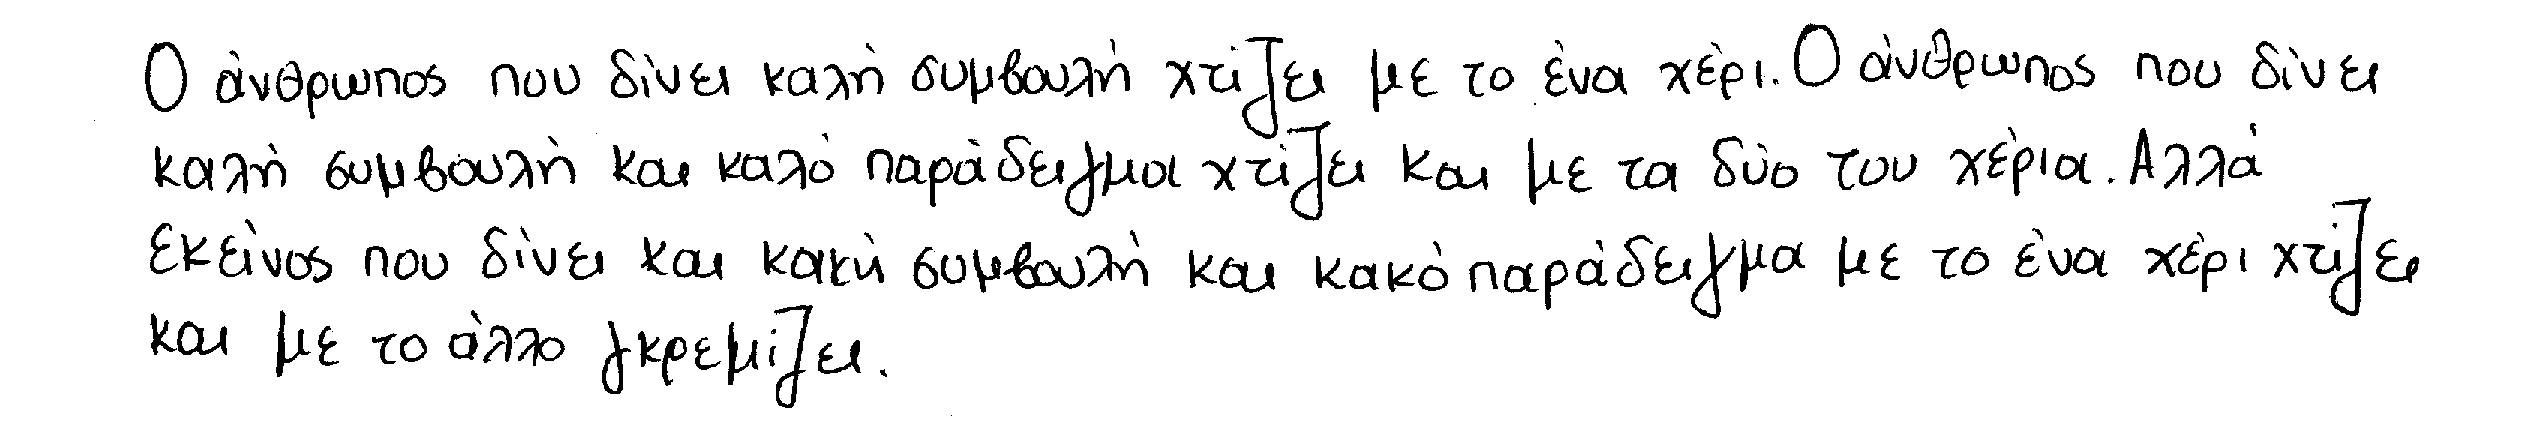 Ο άνθρωπος που δίνει καλή συμβουλή χτίζει με το ένα χέρι. Ο άνθρωπος που δίνει
καλή συμβουλή και καλό παράδειγμα χτίζει και με τα δύο του χέρια. Αλλά
εκείνος που δίνει και κακή συμβουλή και κακό παράδειγμα με το ένα χέρι χτίζει
και με το άλλο γκρεμίζει.